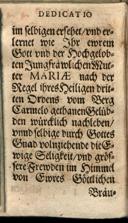 DEDICATIO
im selbigen ersehet / vnd er-
lernet wie Ihr ewrem
Gott vnd der Hochgelob-
ten Jungfräwlichen Mut-
ter MARIÆ nach der
Regel ihres Heiligen drit-
ten Ordens vom Berg
Carmelo gethanen Gelüb-
den würcklich nachleben /
vnnd selbige durch Gottes
Gnad volnziehende die E-
wige Seligkeit / vnd grös-
sere Frewden im Himmel
von Ewres Göttlichen
Bräu-